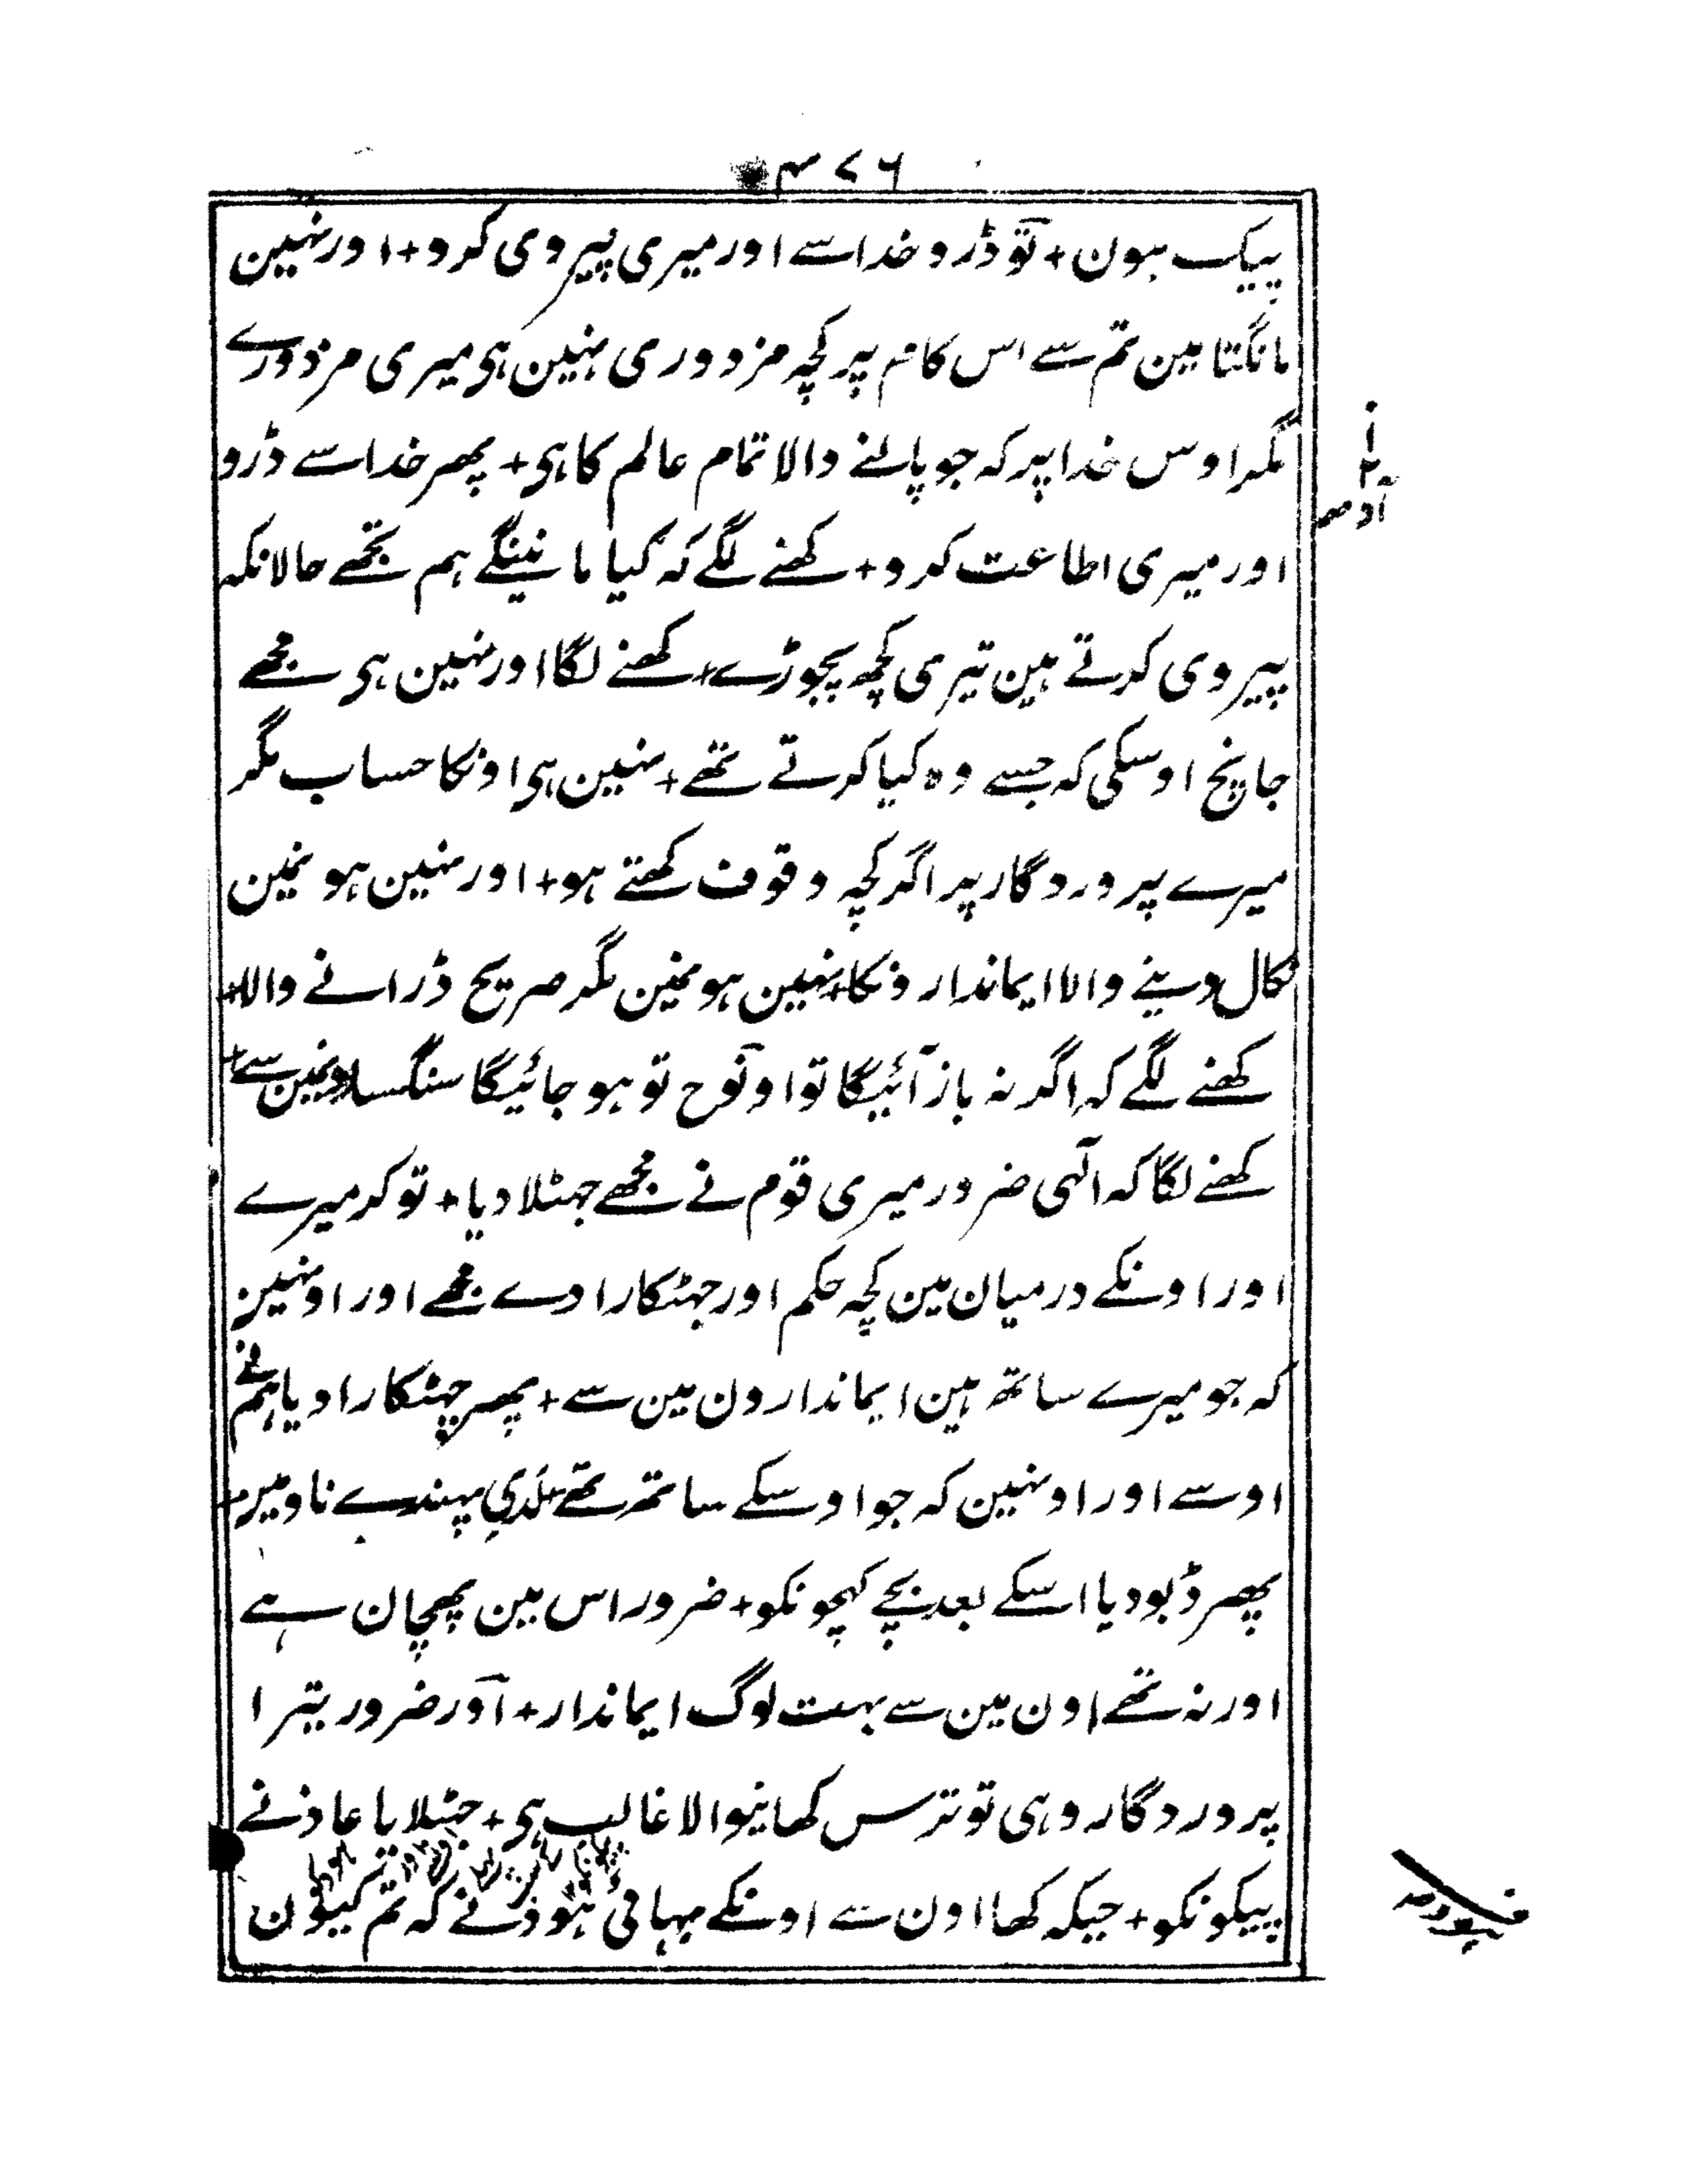 ۴۷۶
پیک ہون + تو ڈرو خدا سے اور میری پیروی کرو + اور نہین
مانگتا مین تم سے اس کام پر کچہ مزدوری نہین ہی میری مزدورے
مگر اوس خدا پر کہ جو پالنے والا تمام عالم کا ہی + پھر خدا سے ڈرو
اور میری اطاعت کرو + کھنے لگے کہ کیا مانینگے ہم تجھے حالانکہ
پیروی کرتے ہین تیری کچھ پچوڑے + کھنے لگا اور نہین ہی مجھے
جانچ اوسکی کہ جسے وہ کیا کرتے تھے + نہین ہی اونکا حساب مگر
میرے پروردگار پر اگر کچہ وقوف رکھتے ہو + اور نہین ہو نمین
نکال دینے والا ایماندارونکا + نہین ہو نمین مگر صریح ڈرانے والا +
کھنے لگے کہ اگر نہ باز آئیگا تو او نوح تو ہو جائیگا سنگسارونمین سے +
کھنے لگا کہ الٰہی ضرور میری قوم نے مجھے جہٹلا دیا + تو کر میرے
اور اونکے درمیان مین کچہ حکم اور چہٹکارا دے مجھے اور اونہین
کہ جو میرے ساتھ ہین ایماندارون مین سے + پھر چہٹکارا دیا ہمنے
اوسے اور اونہین کہ جو اوسکے ساتھ تھے لدی پہندے ناو مین +
پھر ڈبو دیا اسکے بعد بچے کہچونکو + ضرور اس مین پہچان ہے
اور نہ تھے اون مین سے بہت لوگ ایماندار + اور ضرور تیرا
پروردگار وہی تو ترس کھانیوالا غالب ہی + جہٹلایا عاد نے
پیکونکو + جبکہ کھا اون سے اونکے بہائی ہود نے کہ تم کیون